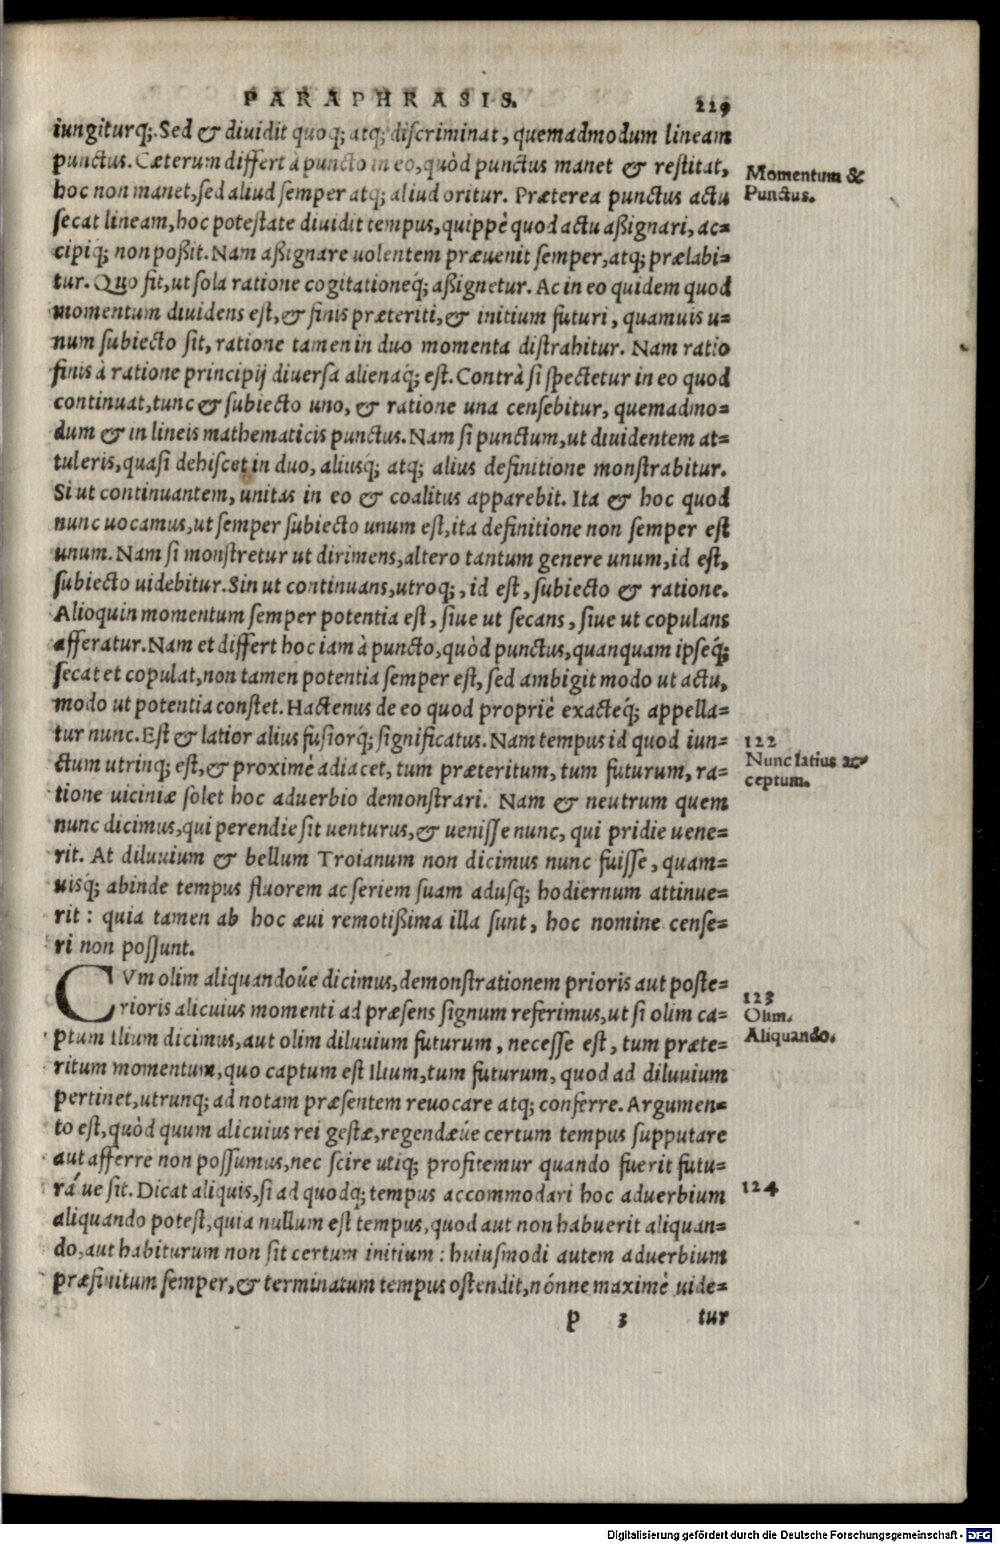 PARAPHRASIS. 219
iungiturq;. Sed & diuidit quoq; atq; discriminat, quemadmodum lineam
punctus. Cæterum differt à puncto in eo, quòd punctus manet & restitat,
Momentum &
Punctus.
hoc non manet, sed aliud semper atq; aliud oritur. Præterea punctus actu
secat lineam, hoc potestate diuidit tempus, quippè quod actu aßignari, ac=
cipiq; non poßit. Nam aßignare uolentem præuenit semper, atq; prælabi=
tur. Quo fit, ut sola ratione cogitationeq́; aßignetur. Ac in eo quidem quod
momentum diuidens est, & finis præteriti, & initium futuri, quamuis u=
num subiecto sit, ratione tamen in duo momenta distrahitur. Nam ratio
finis à ratione principij diuersa alienaq́; est. Contrà si spectetur in eo quod
continuat, tunc & subiecto uno, & ratione una censebitur, quemadmo=
dum & in lineis mathematicis punctus. Nam si punctum, ut diuidentem at=
tuleris, quasi dehiscet in duo, aliusq́; atq; alius definitione monstrabitur.
Si ut continuantem, unitas in eo & coalitus apparebit. Ita & hoc quod
nunc uocamus, ut semper subiecto unum est, ita definitione non semper est
unum. Nam si monstretur ut dirimens, altero tantum genere unum, id est,
subiecto uidebitur. Sin ut continuans, utroq;, id est, subiecto & ratione.
Alioquin momentum semper potentia est, siue ut secans, siue ut copulans
afferatur. Nam et differt hoc iam à puncto, quòd punctus, quanquam ipseq́;
secat et copulat, non tamen potentia semper est, sed ambigit modo ut actu,
modo ut potentia constet. Hactenus de eo quod propriè exacteq́; appella=
tur nunc. Est & latior alius fusiorq; significatus. Nam tempus id quod iun=
122
Nunc latius ac=
ceptum.
ctum utrinq; est, & proximè adiacet, tum præteritum, tum futurum, ra=
tione uiciniæ solet hoc aduerbio demonstrari. Nam & neutrum quem
nunc dicimus, qui perendie sit uenturus, & uenisse nunc, qui pridie uene=
rit. At diluuium & bellum Troianum non dicimus nunc fuisse, quam=
uisq́; abinde tempus fluorem ac seriem suam adusq; hodiernum attinue=
rit: quia tamen ab hoc æui remotißima illa sunt, hoc nomine cense=
ri non possunt.
CVm olim aliquandoúe dicimus, demonstrationem prioris aut poste=
123
Olim.
Aliquando.
rioris alicuius momenti ad præsens signum referimus, ut si olim ca=
ptum Ilium dicimus, aut olim diluuium futurum, necesse est, tum præte=
ritum momentum, quo captum est Ilium, tum futurum, quod ad diluuium
pertinet, utrunq; ad notam præsentem reuocare atq; conferre. Argumen=
to est, quòd quum alicuius rei gestæ, regendæúe certum tempus supputare
aut afferre non possumus, nec scire utiq; profitemur quando fuerit futu=
rá ue sit. Dicat aliquis, si ad quodq; tempus accommodari hoc aduerbium
124
aliquando potest, quia nullum est tempus, quod aut non habuerit aliquan=
do, aut habiturum non sit certum initium: huiusmodi autem aduerbium
præfinitum semper, & terminatum tempus ostendit, nónne maximè uide=
p 3 tur
Digitalisierung gefördert durch die Deutsche Forschungsgemeinschaft - DFG